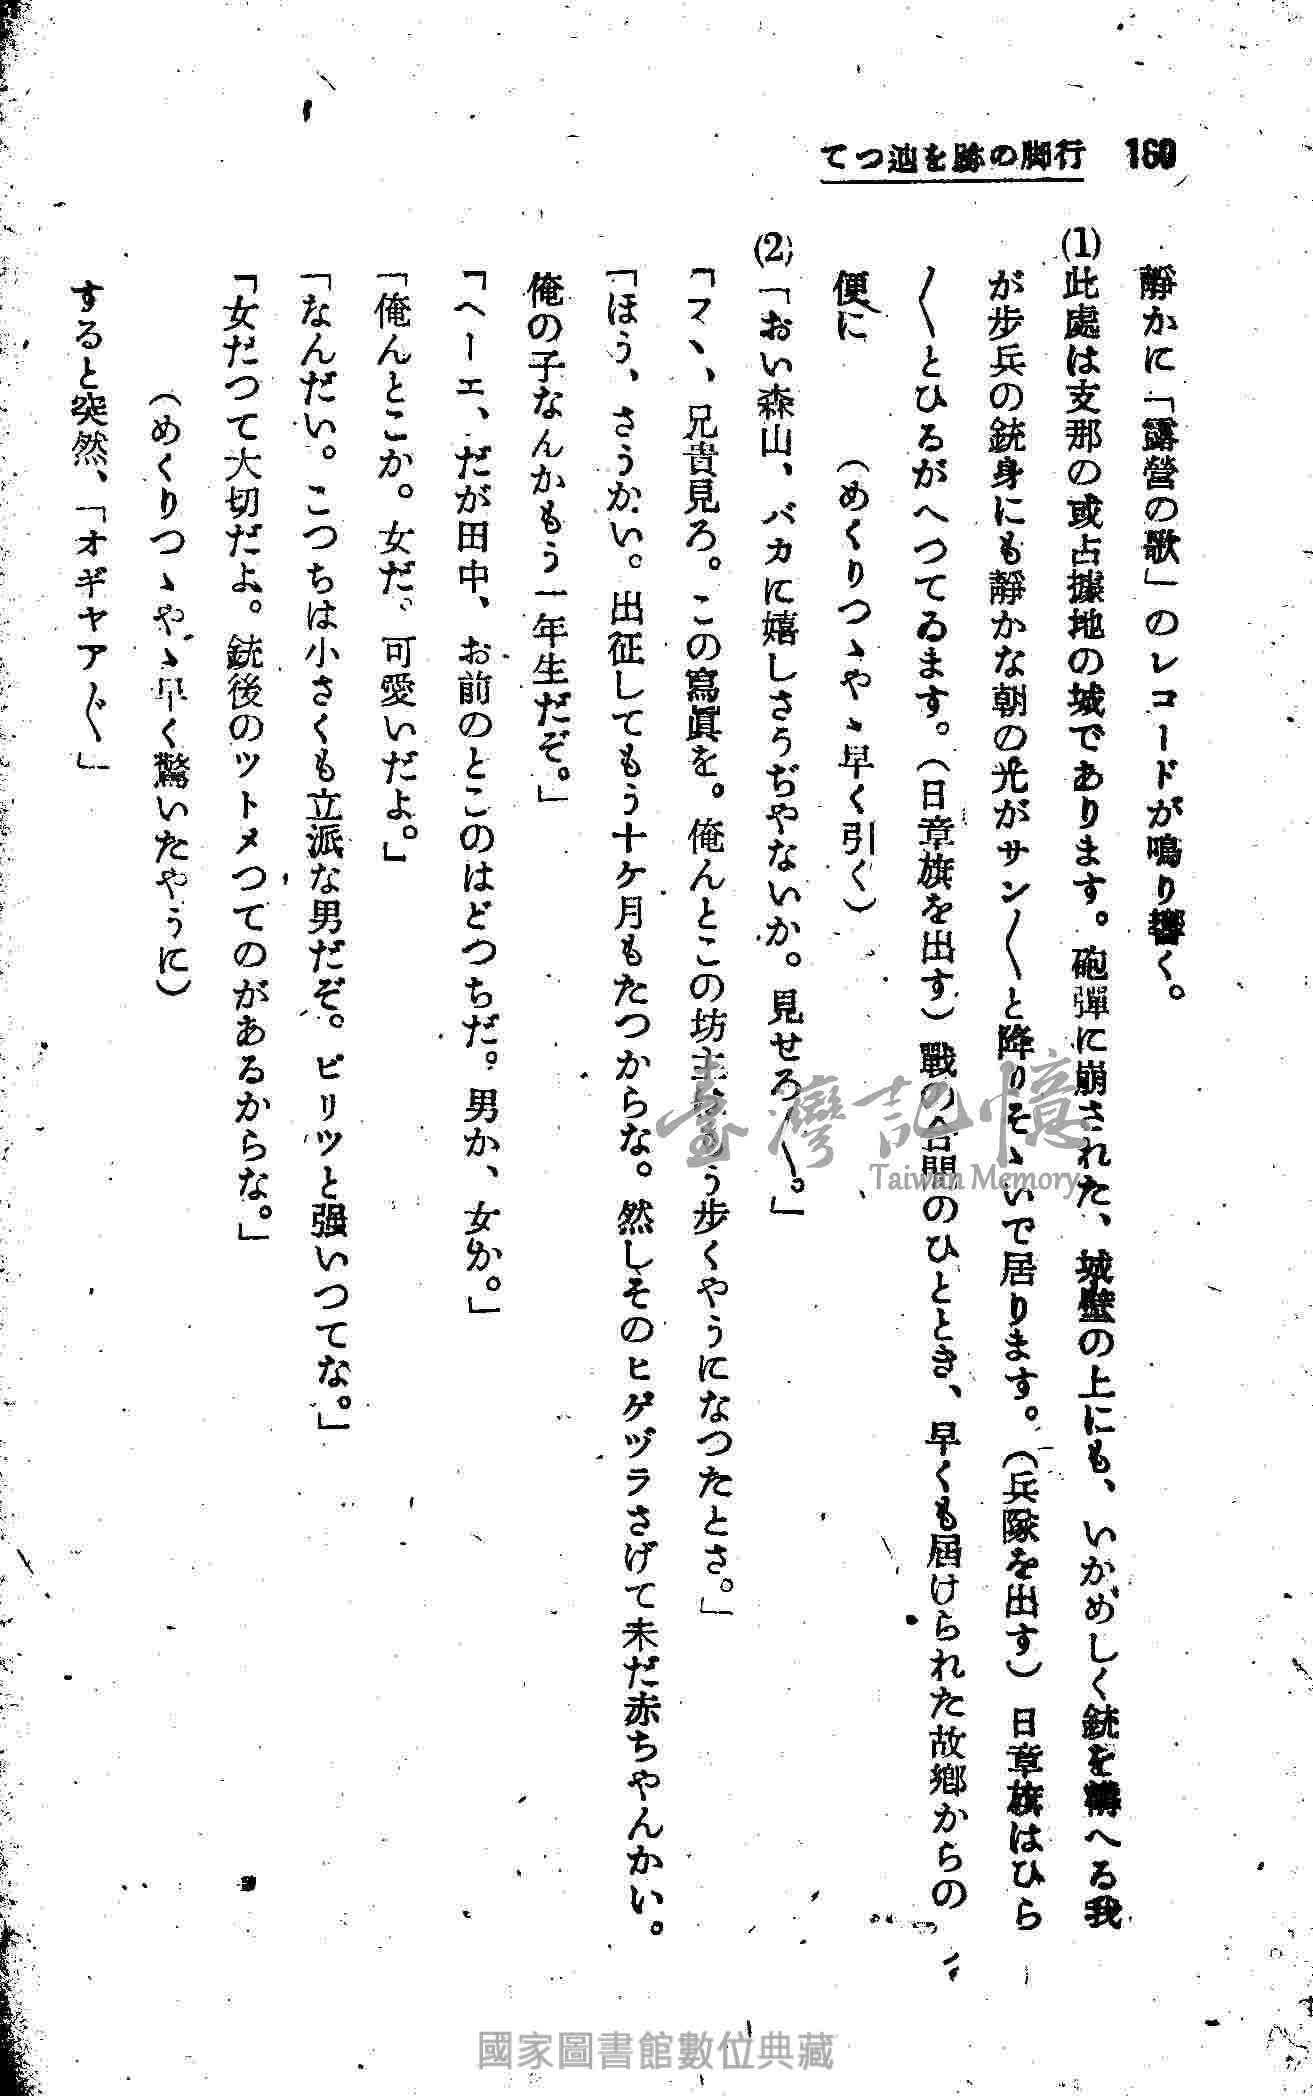 160 行脚の跡を辿つて
靜かに「露營の歌」のレコードが鳴り響く。
(1)此處は支那の或占據地の城であります。砲彈に崩された、城壁の上にも、いかめしく銃を構へる我
が步兵の銃身にも靜かな朝の光がサン〱と降りそゝいで居ります。（兵隊を出す）日章旗はひら
〱とひるがへつてゐます。（日章旗を出す）戰の合間のひととき、早くも屆けられた故鄉からの
便に　（めくりつゝやゝ早く引く）
(2)「おい森山、バカに嬉しさうぢやないか。見せろ〱。」
「マヽ、兄貴見ろ。この寫眞を。俺んとこの坊主はもう步くやうになつたとさ。」
「ほう、さうかい。出征してもう十ケ月もたつからな。然しそのヒゲヅラさげて未だ赤ちやんかい。
俺の子なんかもう一年生だぞ。」
「ヘーエ、だが田中、お前のとこのはどつちだ。男か、女か。」
「俺んとこか。女だ。可愛いだよ。」
「なんだい。こつちは小さくも立派な男だぞ。ピリツと强いつてな。」
「女だつて大切だよ。銃後のツトメつてのがあるからな。」
（めくりつゝやゝ早く驚いたやうに）
すると突然、「オギヤア〲」
臺灣記憶
Taiwan Memory
國家圖書館數位典藏